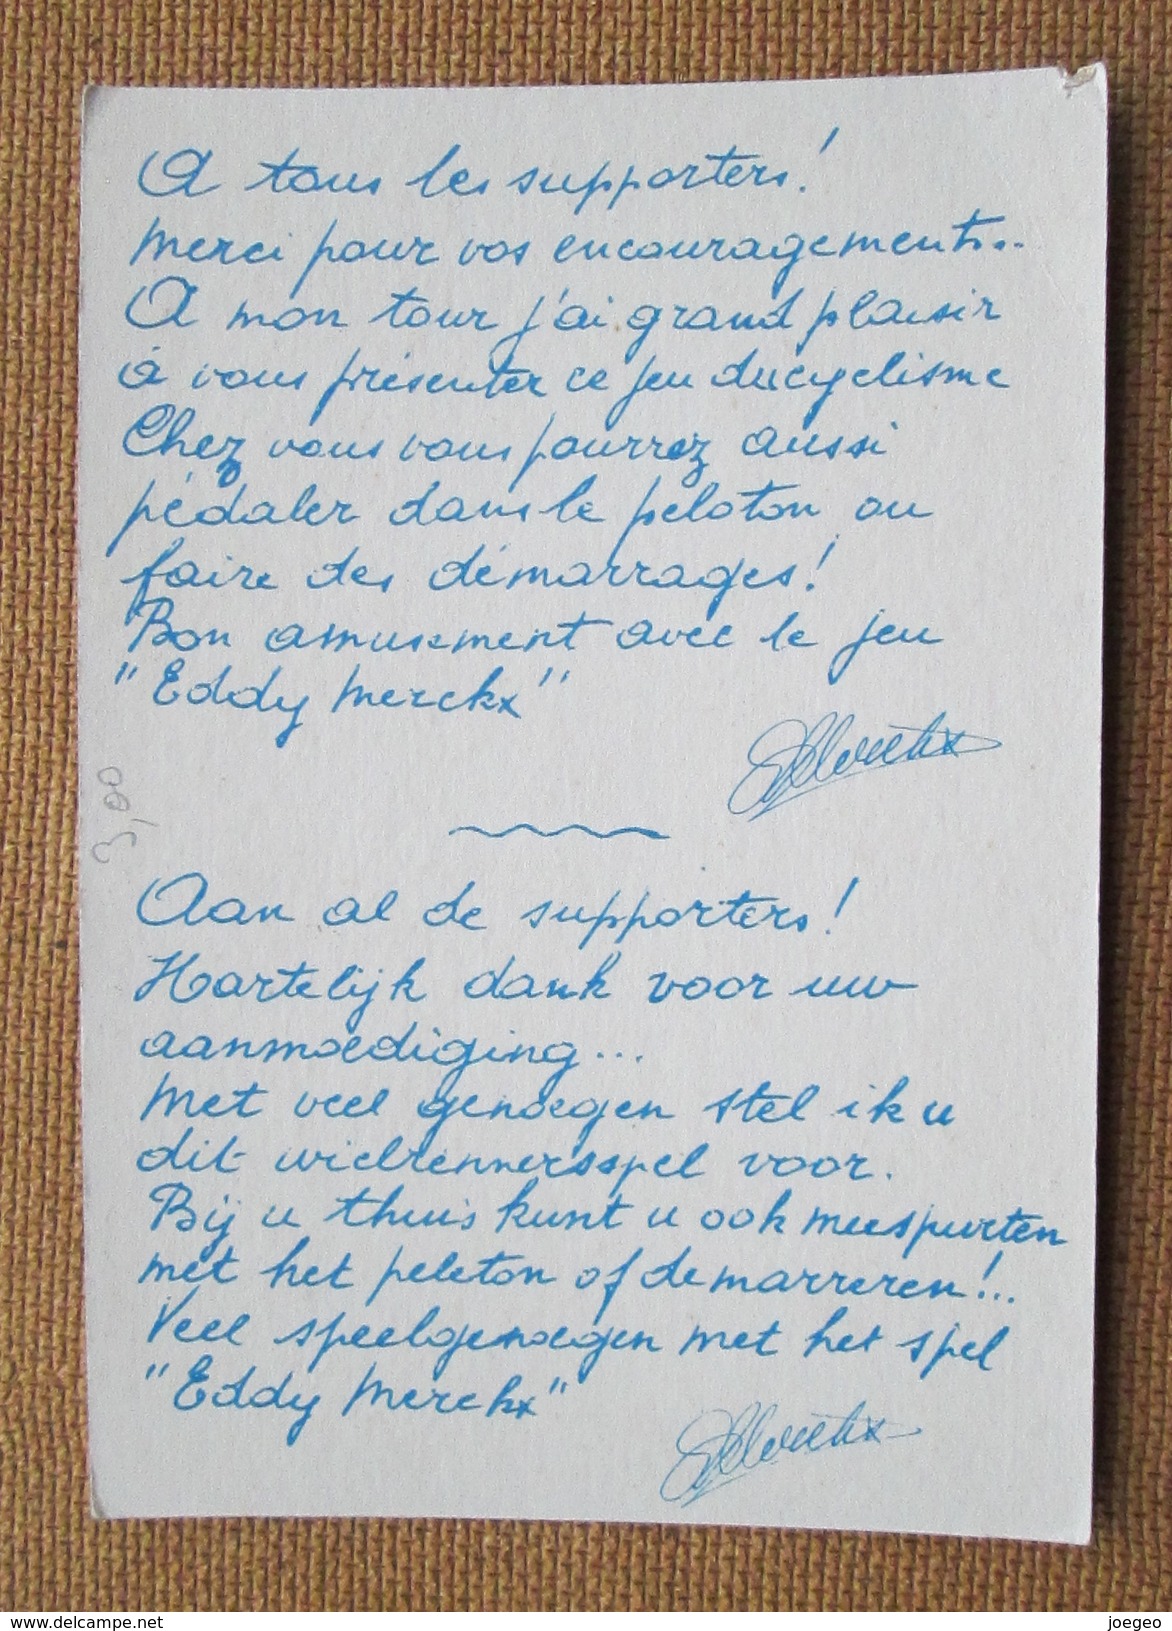 A tous les supporters!
Merci pour vos encouragements..
A mon tour j'ai grand plaisir
à vous présenter ce jeu du cyclisme
Chez vous vous pourrez aussi
pédaler dans le peloton ou
faire des démarrages!
Bon amusement avec le jeu
"Eddy Merckx"
3,00
Aan al de supporters!
Hartelijk dank voor uw
aanmoediging...
Met veel genoegen stel ik u
dit wielrennersspel voor.
Bij u thuis kunt u ook meespurten
met het peleton of demarreren!..
Veel speelgenoegen met het spel
"Eddy Merckx"
www.delcampe.net
joegeo